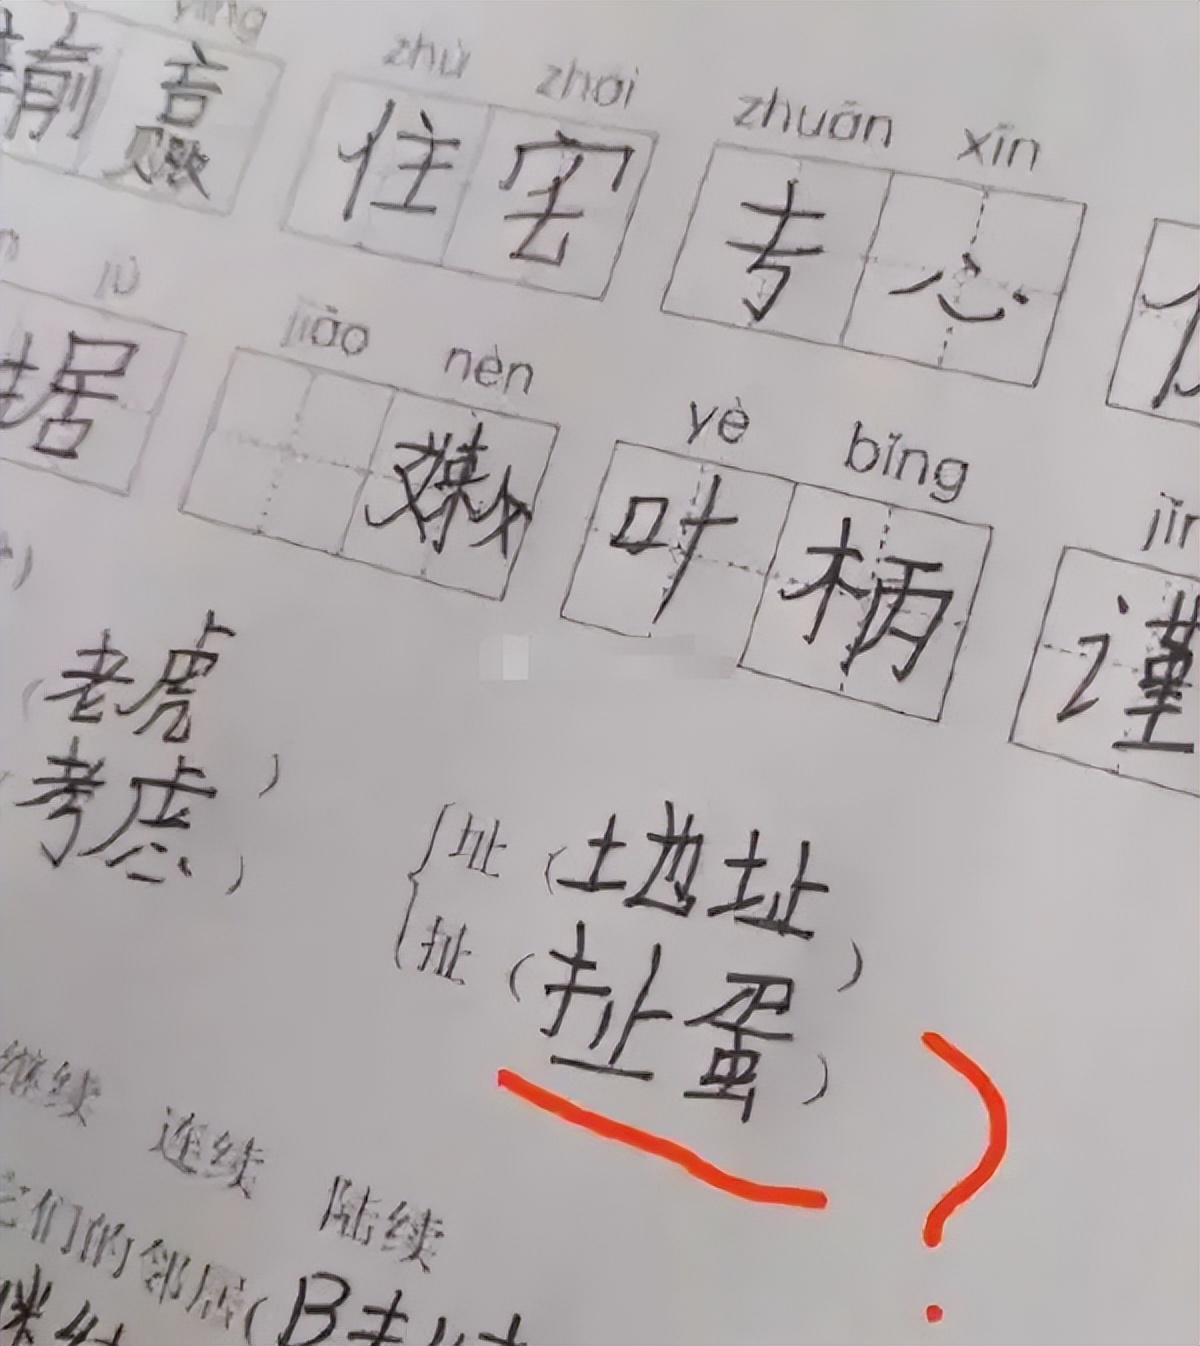 zhù zhái zhuān xīn
输 赢 住 宅 专 心
jù jiāo nèn yè bǐng
据 嫩 叶 柄 谨
老虎
考虑
址 (地址)
扯 (扯蛋)
继续 连续 陆续
它们的邻居(B